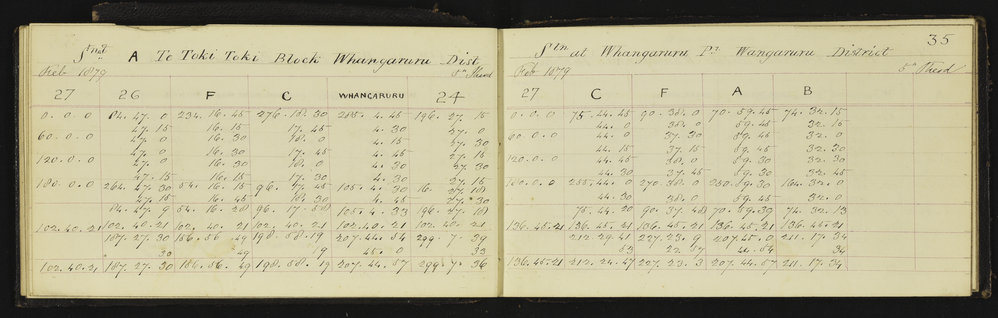 Stn at A Te Toki Toki Block Whangaruru Dist
Feb 1879 5" Theod
27 26 F C WHANGARURU 24
0. 0. 0 84. 47. 0 234. 16. 45 276. 18. 30 285. 4. 45 196. 27. 15
47. 15 16. 15 17. 45 4. 30 27. 0
60. 0. 0 47. 0 16. 30 18. 0 4. 15 27. 30
47. 0 16. 30 17. 45 4. 45 27. 15
120. 0. 0 27. 0 16. 30 18. 0 4. 30 27. 30
47. 15 16. 15 17. 30 4. 30 27. 15
180. 0. 0 264. 47. 30 54. 16. 15 96. 17. 45 105. 4. 30 16. 27. 18
47. 15 16. 45 18. 30 4. 45 27. 30
84. 47. 9 54. 16. 28 96. 17. 58 105. 4. 33 196. 27. 18
102. 40. 21 102. 40. 21 102. 40. 21 102. 40. 21 102. 40. 21 102. 40. 21
187. 27. 30 156. 56. 49 198. 58. 19 207. 44. 54 299. 7. 39
30 49 9 45. 0 33
102. 40. 21 187. 27. 30 156. 56. 49 198. 58. 19 207. 44. 57 299. 7. 36
35
Stn at Whangaruru Pt Wangaruru District
Feb 1879 5" Theod
27 C F A B
0. 0. 0 75. 44. 45 90. 38. 0 70. 59. 45 74. 32. 15
44. 0 38. 0 59. 45 32. 15
60. 0. 0 44. 0 37. 30 59. 45 32. 0
44. 15 37. 15 59. 45 32. 30
120. 0. 0 44. 45 38. 0 59. 30 32. 30
44. 30 37. 45 59. 30 32. 45
180. 0. 0 255. 44. 0 270. 38. 0 250. 59. 30 164. 32. 0
44. 30 38. 0 59. 45 32. 0
75. 44. 20 90. 37. 48 70. 59. 39 74. 32. 13
136. 45. 21 136. 45. 21 136. 45. 21 136. 45. 21 136. 45. 21
212. 29. 41 227. 23. 9 207. 45. 0 211. 17. 34
53 22. 57 44. 54 34
136. 45. 21 212. 24. 47 227. 23. 3 207. 44. 57 211. 17. 34